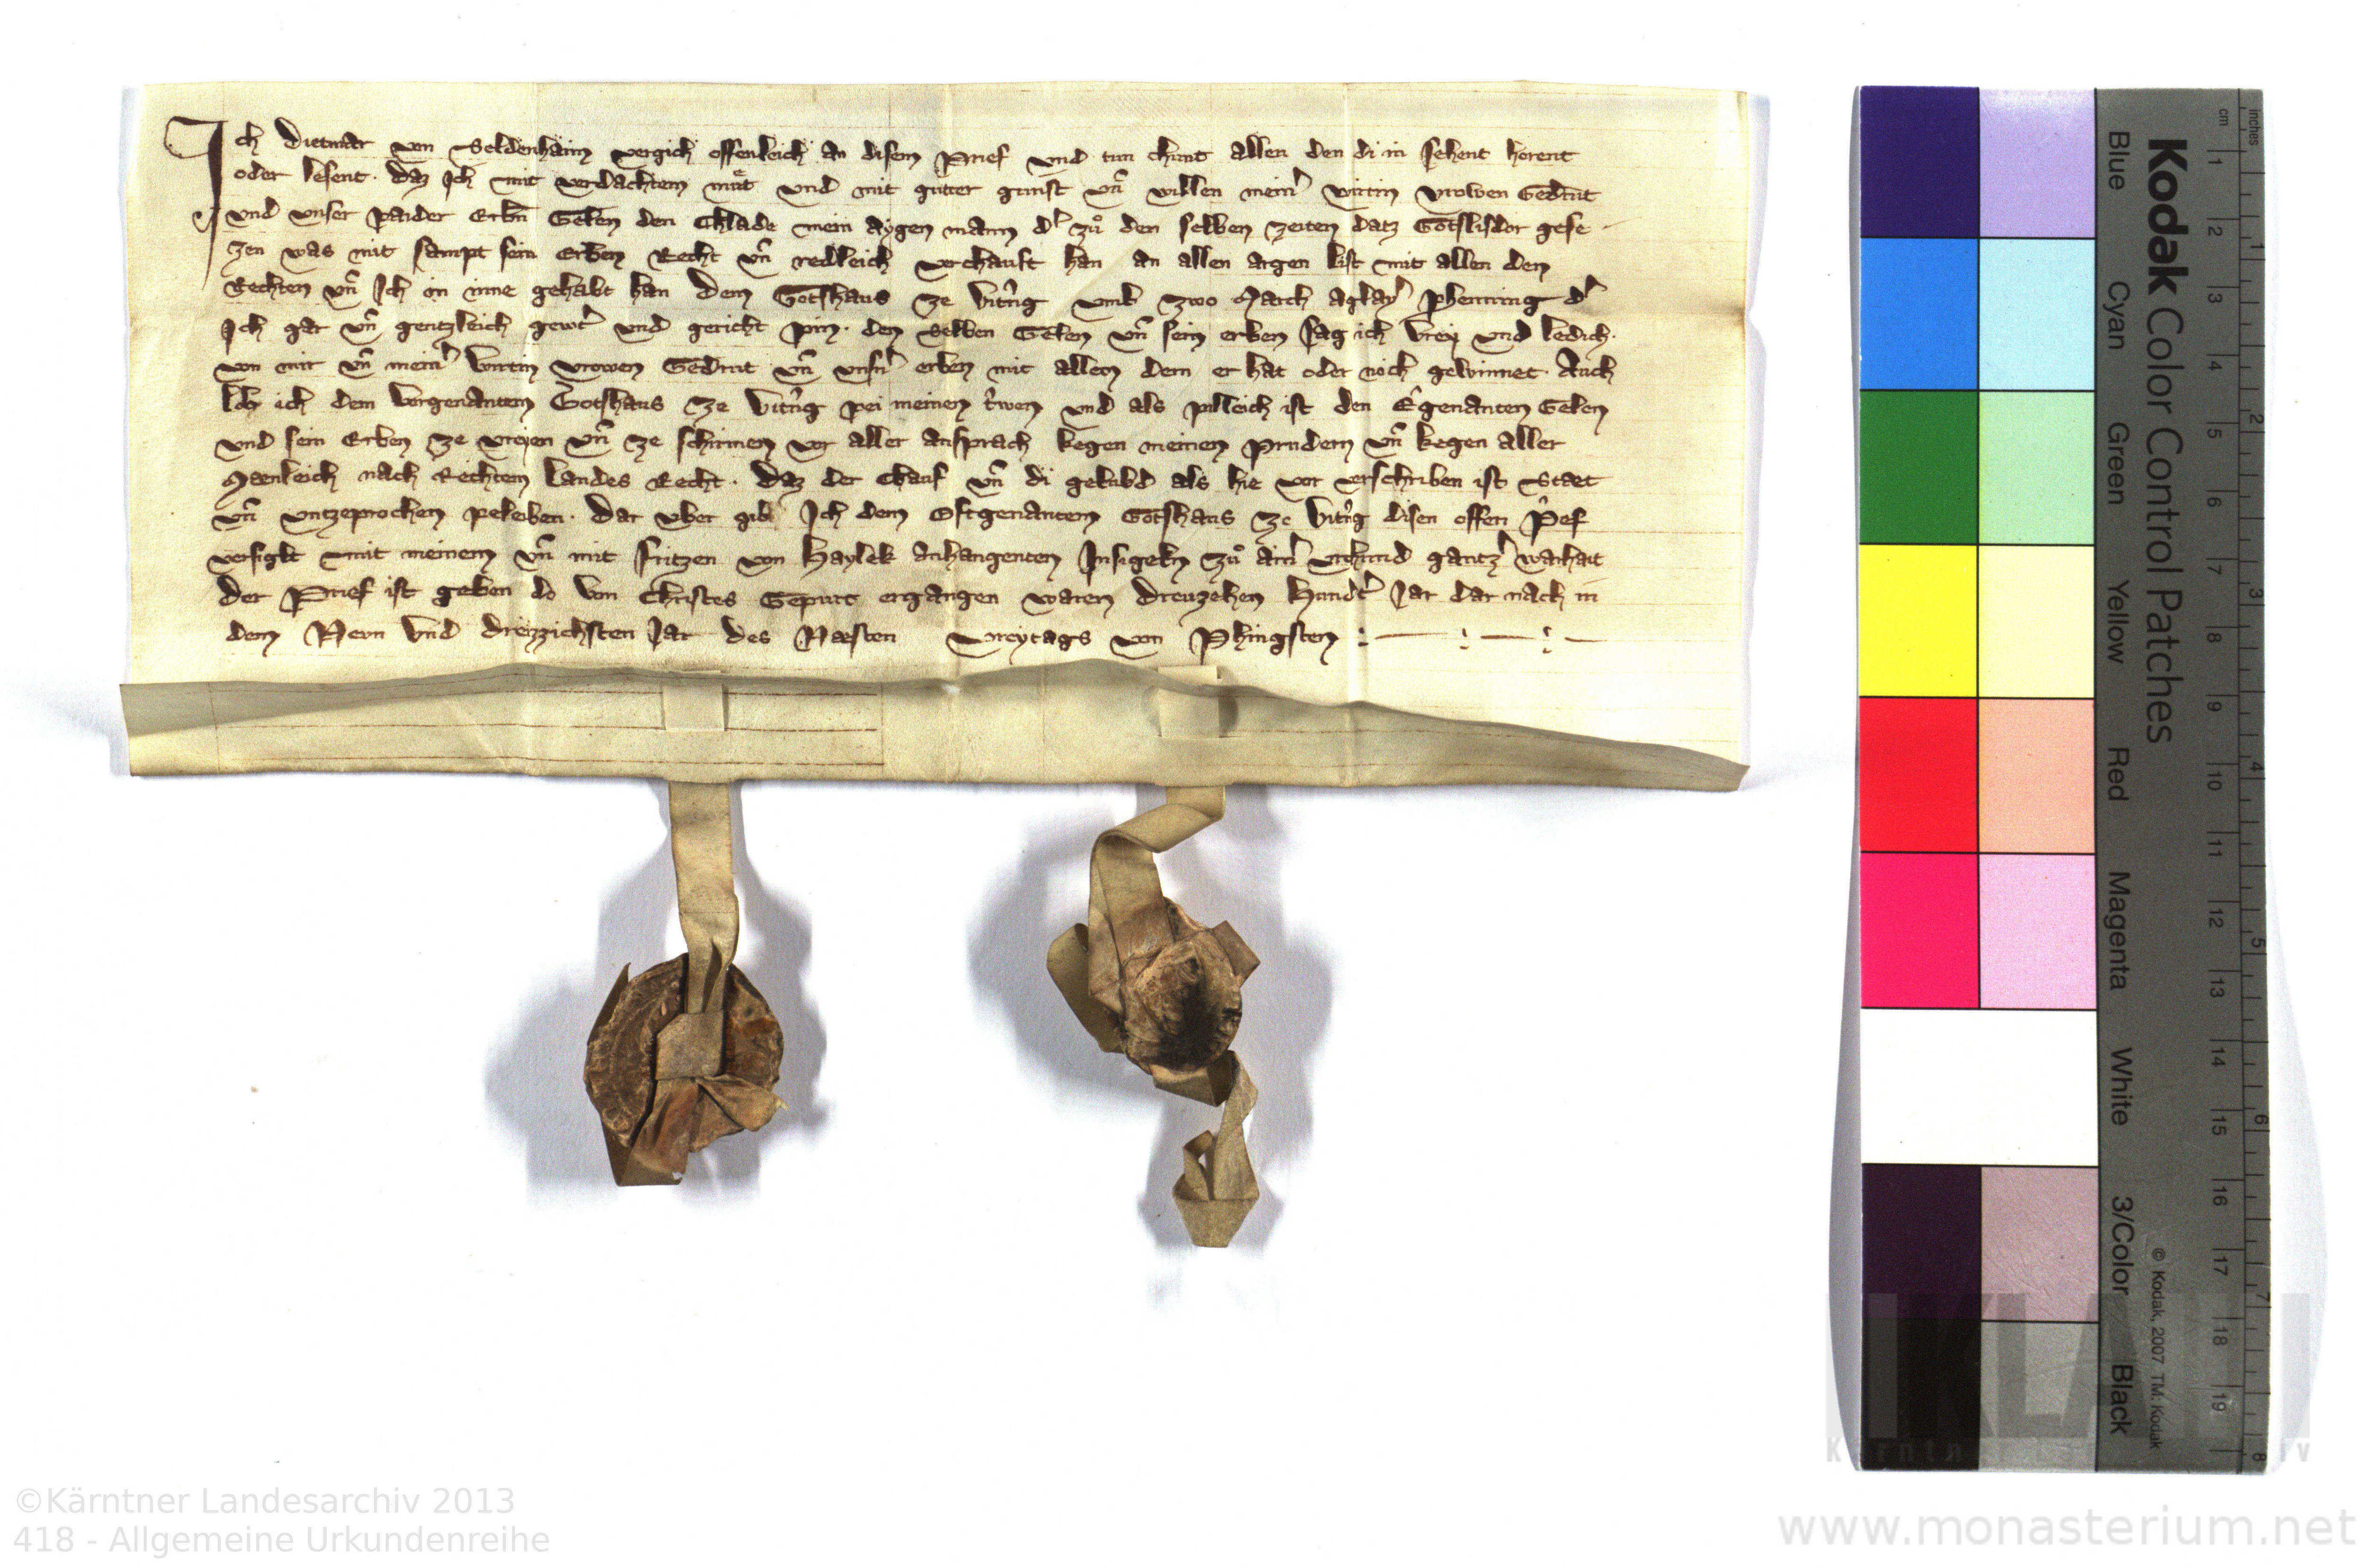 Ich Dietmar von Seldenhaim vergich offenleich an disem Prief vnd tun chunt allen den di in sehent horent
oder lesent. Daz Ich mit verdachtem muͤt vnd mit guter gunst vn̄ willen mein' wirtin vrowen Gedrut
vnd vnser paider Erbn̄ den mein aygen mann d' zuͦ den selben zeiten datz gese
zen was mit sampt sein Erben Recht vn̄ redleich verchauft han an allen argen list mit allen den
Rechten vn̄ Ich in inne gehabt han Dem Gotshaus ze Vitr̄ig vmb zwo March aglay' phenning d'
Ich gar vn̄ gentzleich gewert vnd gericht pin. den Selben Gelen vn̄ sein erben sag ich vrey vnd ledich.
von mir vn̄ mein' wirtin vrowen Gedrut vn̄ vnsr' erben mit allem dem er hat oder noch gewinnet. Auch
lob ich dem Vorgenantem Gotshaus ze Vitr̄ig pei meinen trewen vnd als pilleich ist den Egenanten Gelen
vnd sein Erben ze vreyen vn̄ ze schirmen vor aller ansprach kegen meinen Prudern vn̄ kegen aller
Maenleich nach Rechtem Landes Recht. Daz der Chauf vn̄ di gelubd als hie vor verschriben ist Staet
vn̄ vntzeprochen peleiben. Dar vber gib Ich dem Oftgenantem Gotshaus ze Vitr̄ig disen offen P'ef
versiglt mit meinem vn̄ mit Fritzen von Haylek anhangenten Insigeln zuͦ ain' vrchund gantz' warhait
der Prief ist geben do von Christes Gepurt ergangen waren Dreuzehen Hundt' Jar dar nach in
dem Nevn vnd dreizzichsten Jar des Naesten vreytags von Phingsten
Kodak Color Control Patches
Blue Cyan Green Yellow Red Magenta White 3/Color Black
© Kodak, 2007 TM: Kodak
cm 1 2 3 4 5 6 7 8 9 10 11 12 13 14 15 16 17 18 19
inches 1 2 3 4 5 6 7 8
©Kärntner Landesarchiv 2013
418 - Allgemeine Urkundenreihe
www.monasterium.net